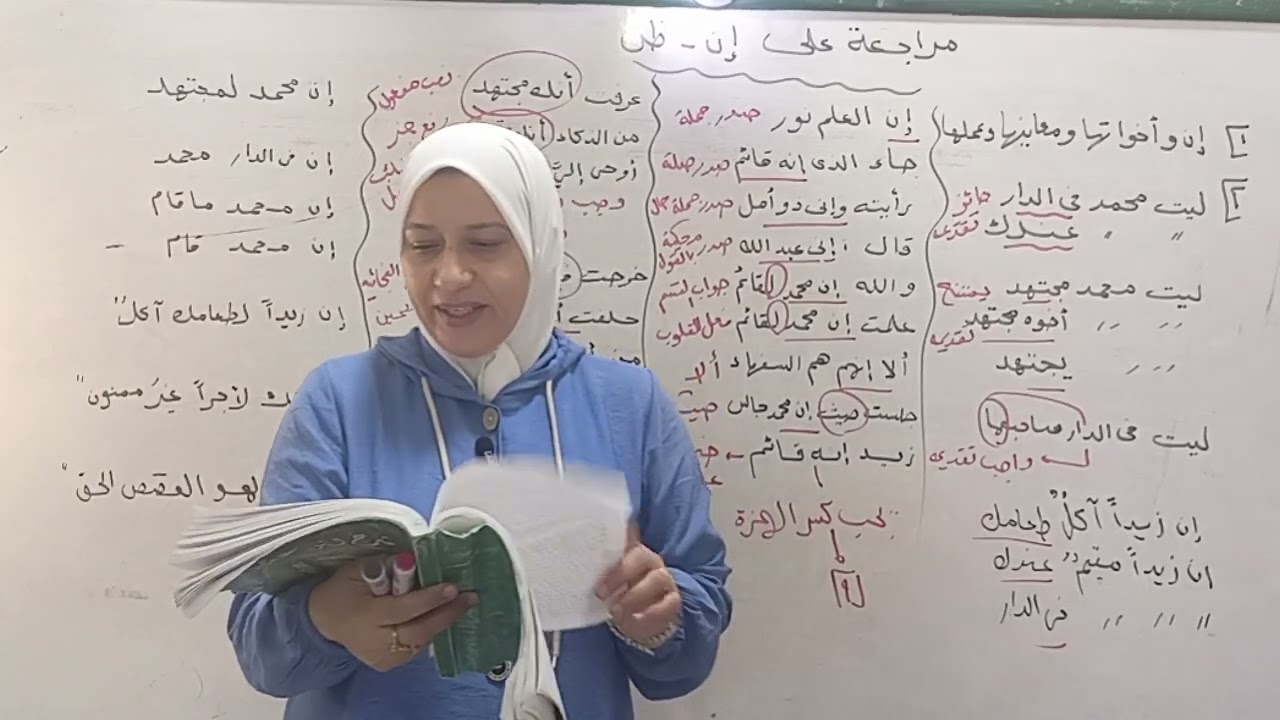 مراجعة على إن - ظن
١ إن وأخواتها ومعانيها وعملها
٢ ليت محمد فى الدار جائز
" " عندك تقديم
ليت محمد مجتهد يمتنع
" " أخوه مجتهد تقديم
" " " يجتهد
ليت فى الدار صاحبها
واجب تقديم
إن زيداً آكلٌ طعامك
إن زيداً مقيم " عندك
" " " " فى الدار
إن العلم نور صدر جملة
جاء الذى إنه قائم صدر صلة
رأيته وإنى ذو أمل صدر جملة حال
قال : إنى عبد الله صدر محكية بالقول
والله إن محمد لقائم جواب القسم
علمت إن محمد لقائم فعل القلوب
ألا إنهم هم السفهاء ألا
جلست حيث إن محمد جالس حيث
زيد إنه قائم
يجب كسر الهمزة
٩
عرفت أنك مجتهد نصب مفعول
من الذكاء
أوحى
خرجت الفجائية
حلفت
إن محمد لمجتهد
إن فى الدار محمد
إن محمد ما قام
إن محمد قام -
إن زيداً لطعامك آكلٌ"
لك لأجراً غيرَ ممنون"
لهو القصص الحق"